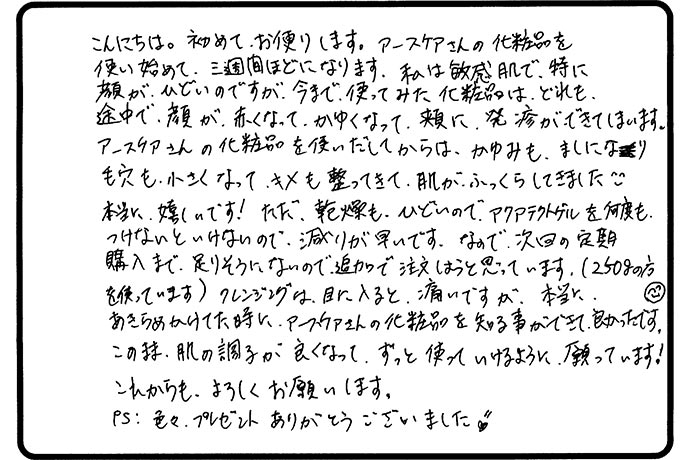 こんにちは。初めて、お便りします。アースケアさんの化粧品を
使い始めて、三週間ほどになります。私は敏感肌で、特に
顔が、ひどいのですが、今まで、使ってみた化粧品は、どれも、
途中で、顔が、赤くなって、かゆくなって、頬に、発疹ができてしまいます。
アースケアさんの化粧品を使いだしてからは、かゆみも、ましになり
毛穴も、小さくなって、キメも整ってきて、肌が、ふっくらしてきました☺
本当に、嬉しいです！ただ、乾燥も、ひどいので、アクアテクトゲルを何度も、
つけないといけないので、減りが早いです。なので、次回の定期
購入まで、足りそうにないので、追加で注文しようと思っています。(250gの方
を使っています) クレンジングは、目に入ると、痛いですが、本当に、☺
あきらめかけてた時に、アースケアさんの化粧品を知る事ができて、良かったです。
この様、肌の調子が良くなって、ずっと使っていけるように、願っています！
これからも、よろしくお願いします。
PS：色々、プレゼントありがとうございました